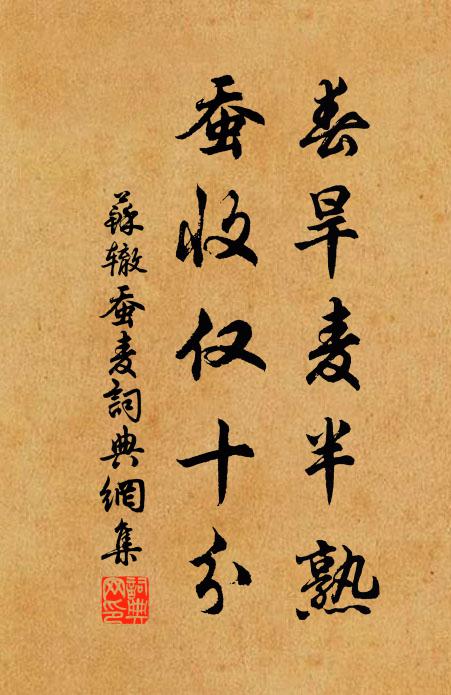 春旱麦半熟
蚕收仅十分
蘇辙蚕麦詞典網集
詞典
网印